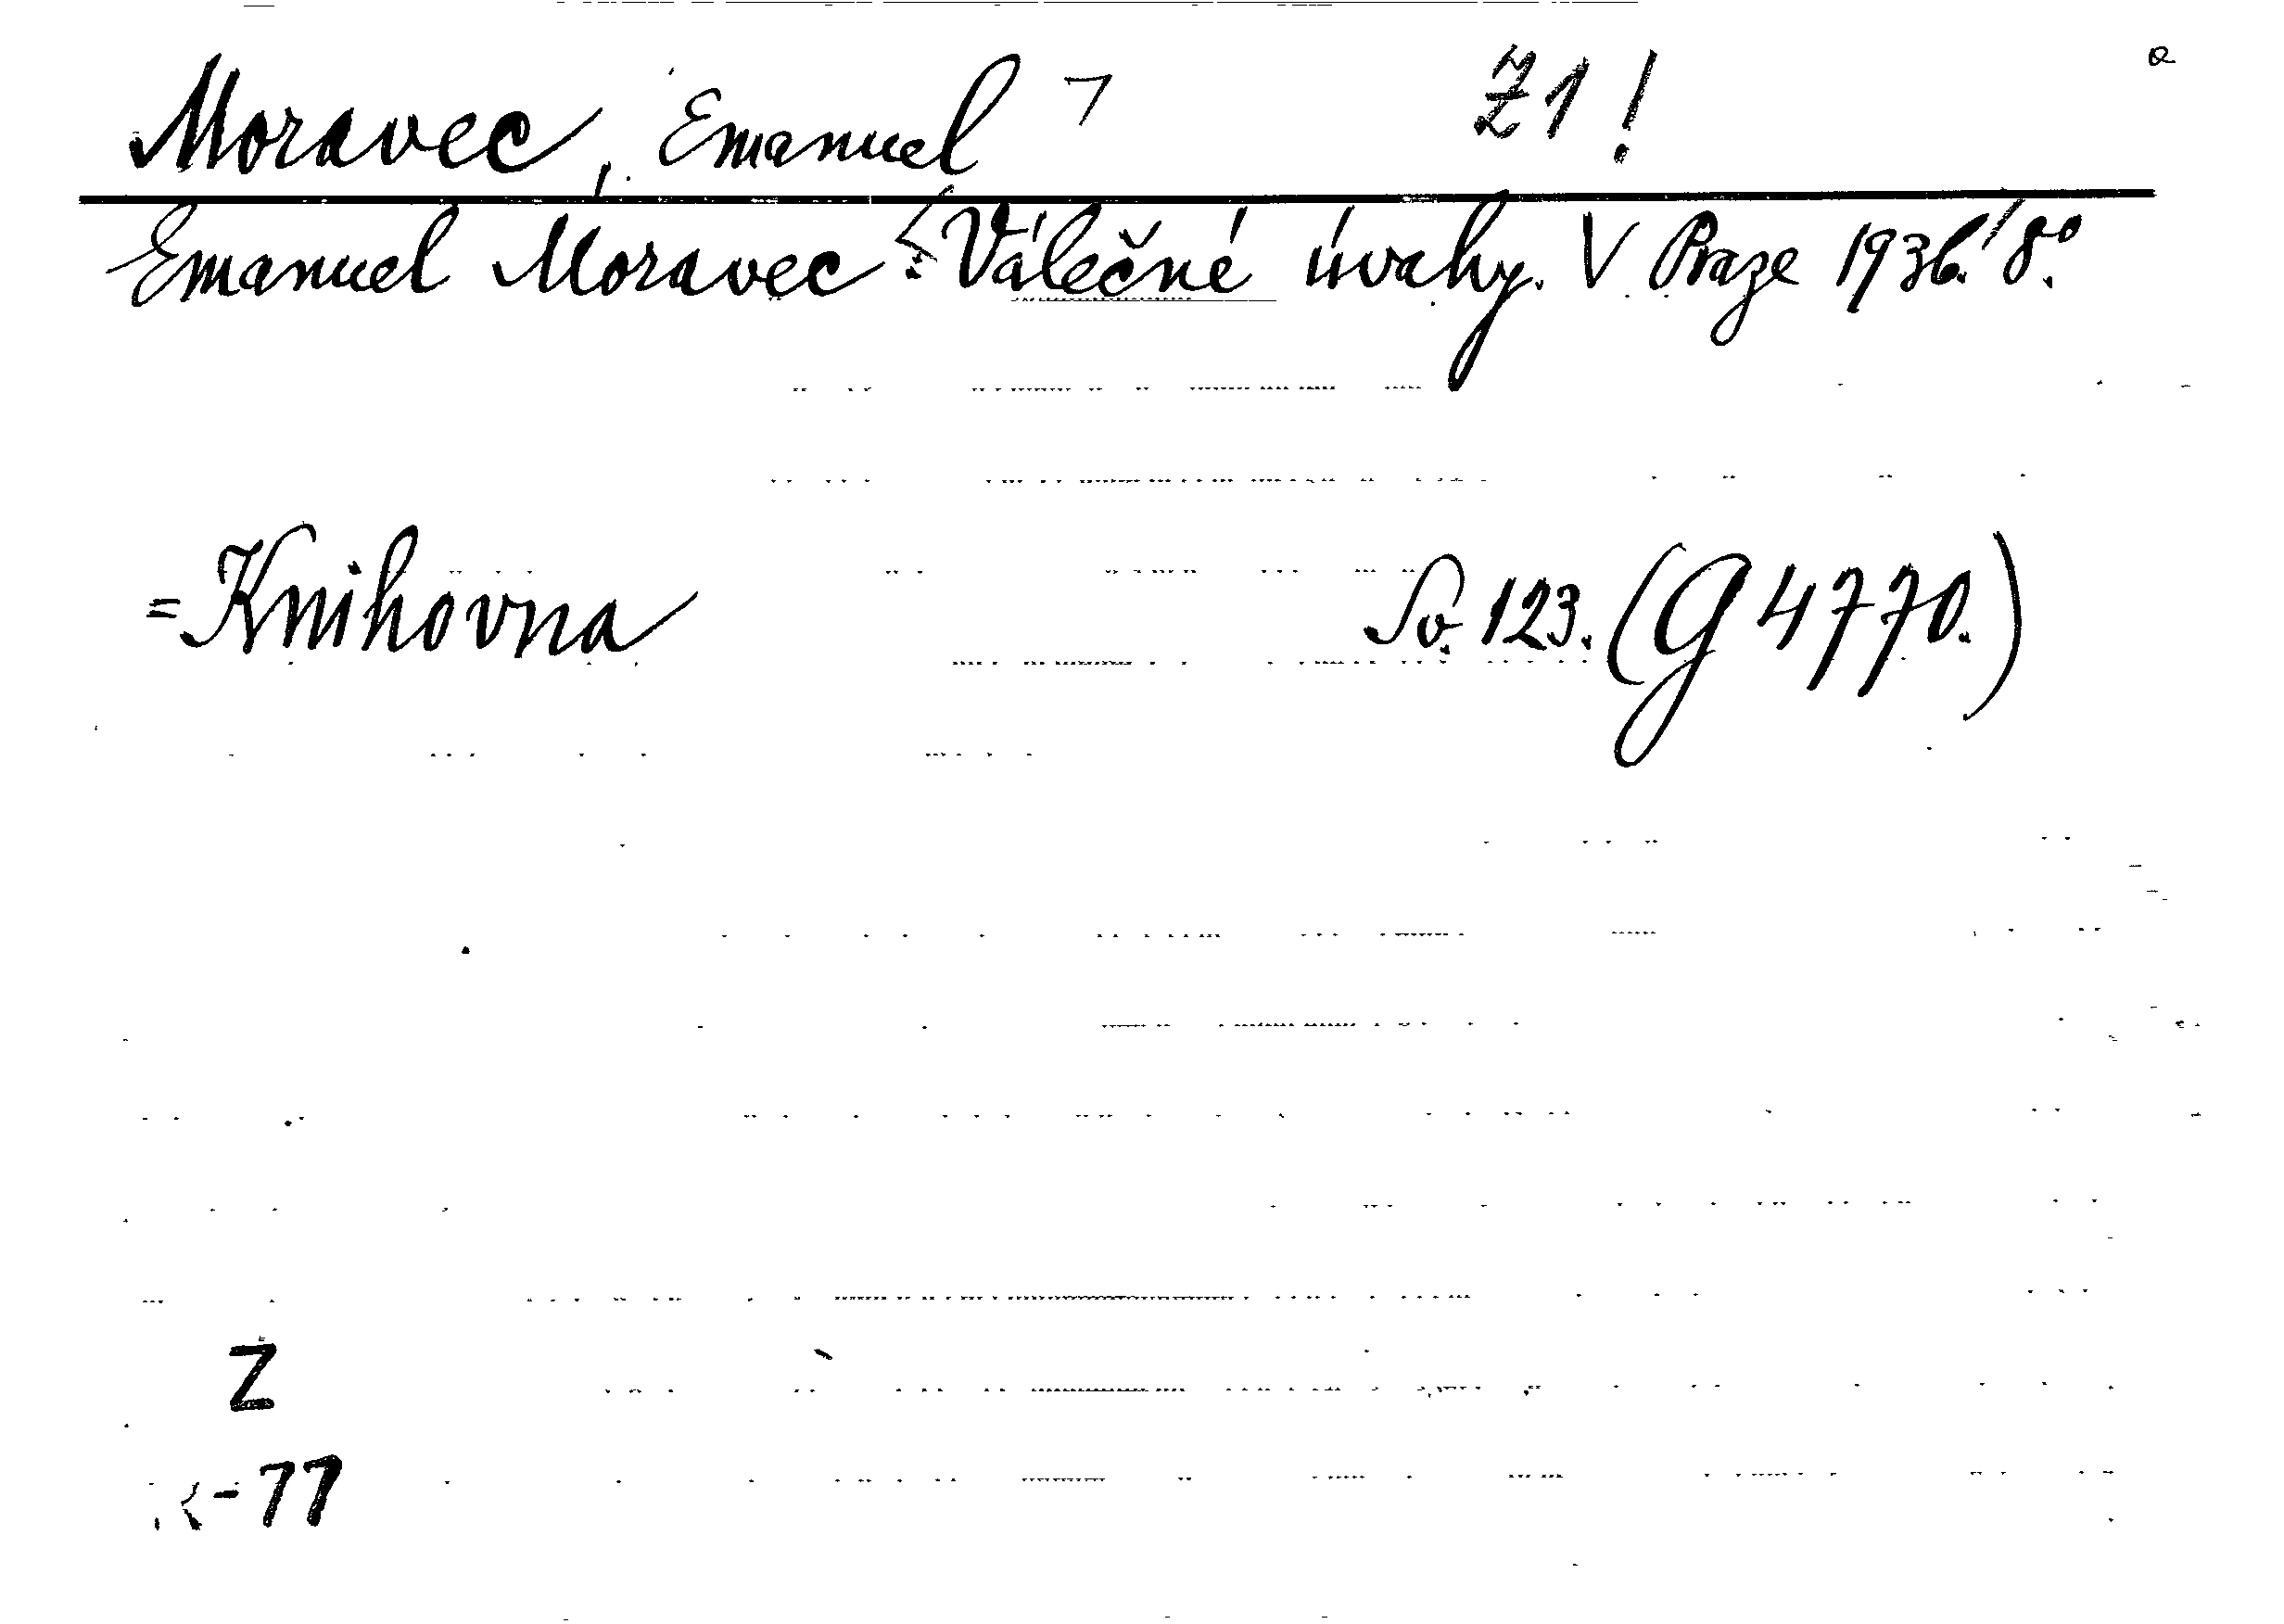 Moravec, Emanuel Z1!
Emanuel Moravec: Válečné úvahy. V Praze 1936. 8°.
=Knihovna Sv. 123. (G 4770.)
Z
R-77